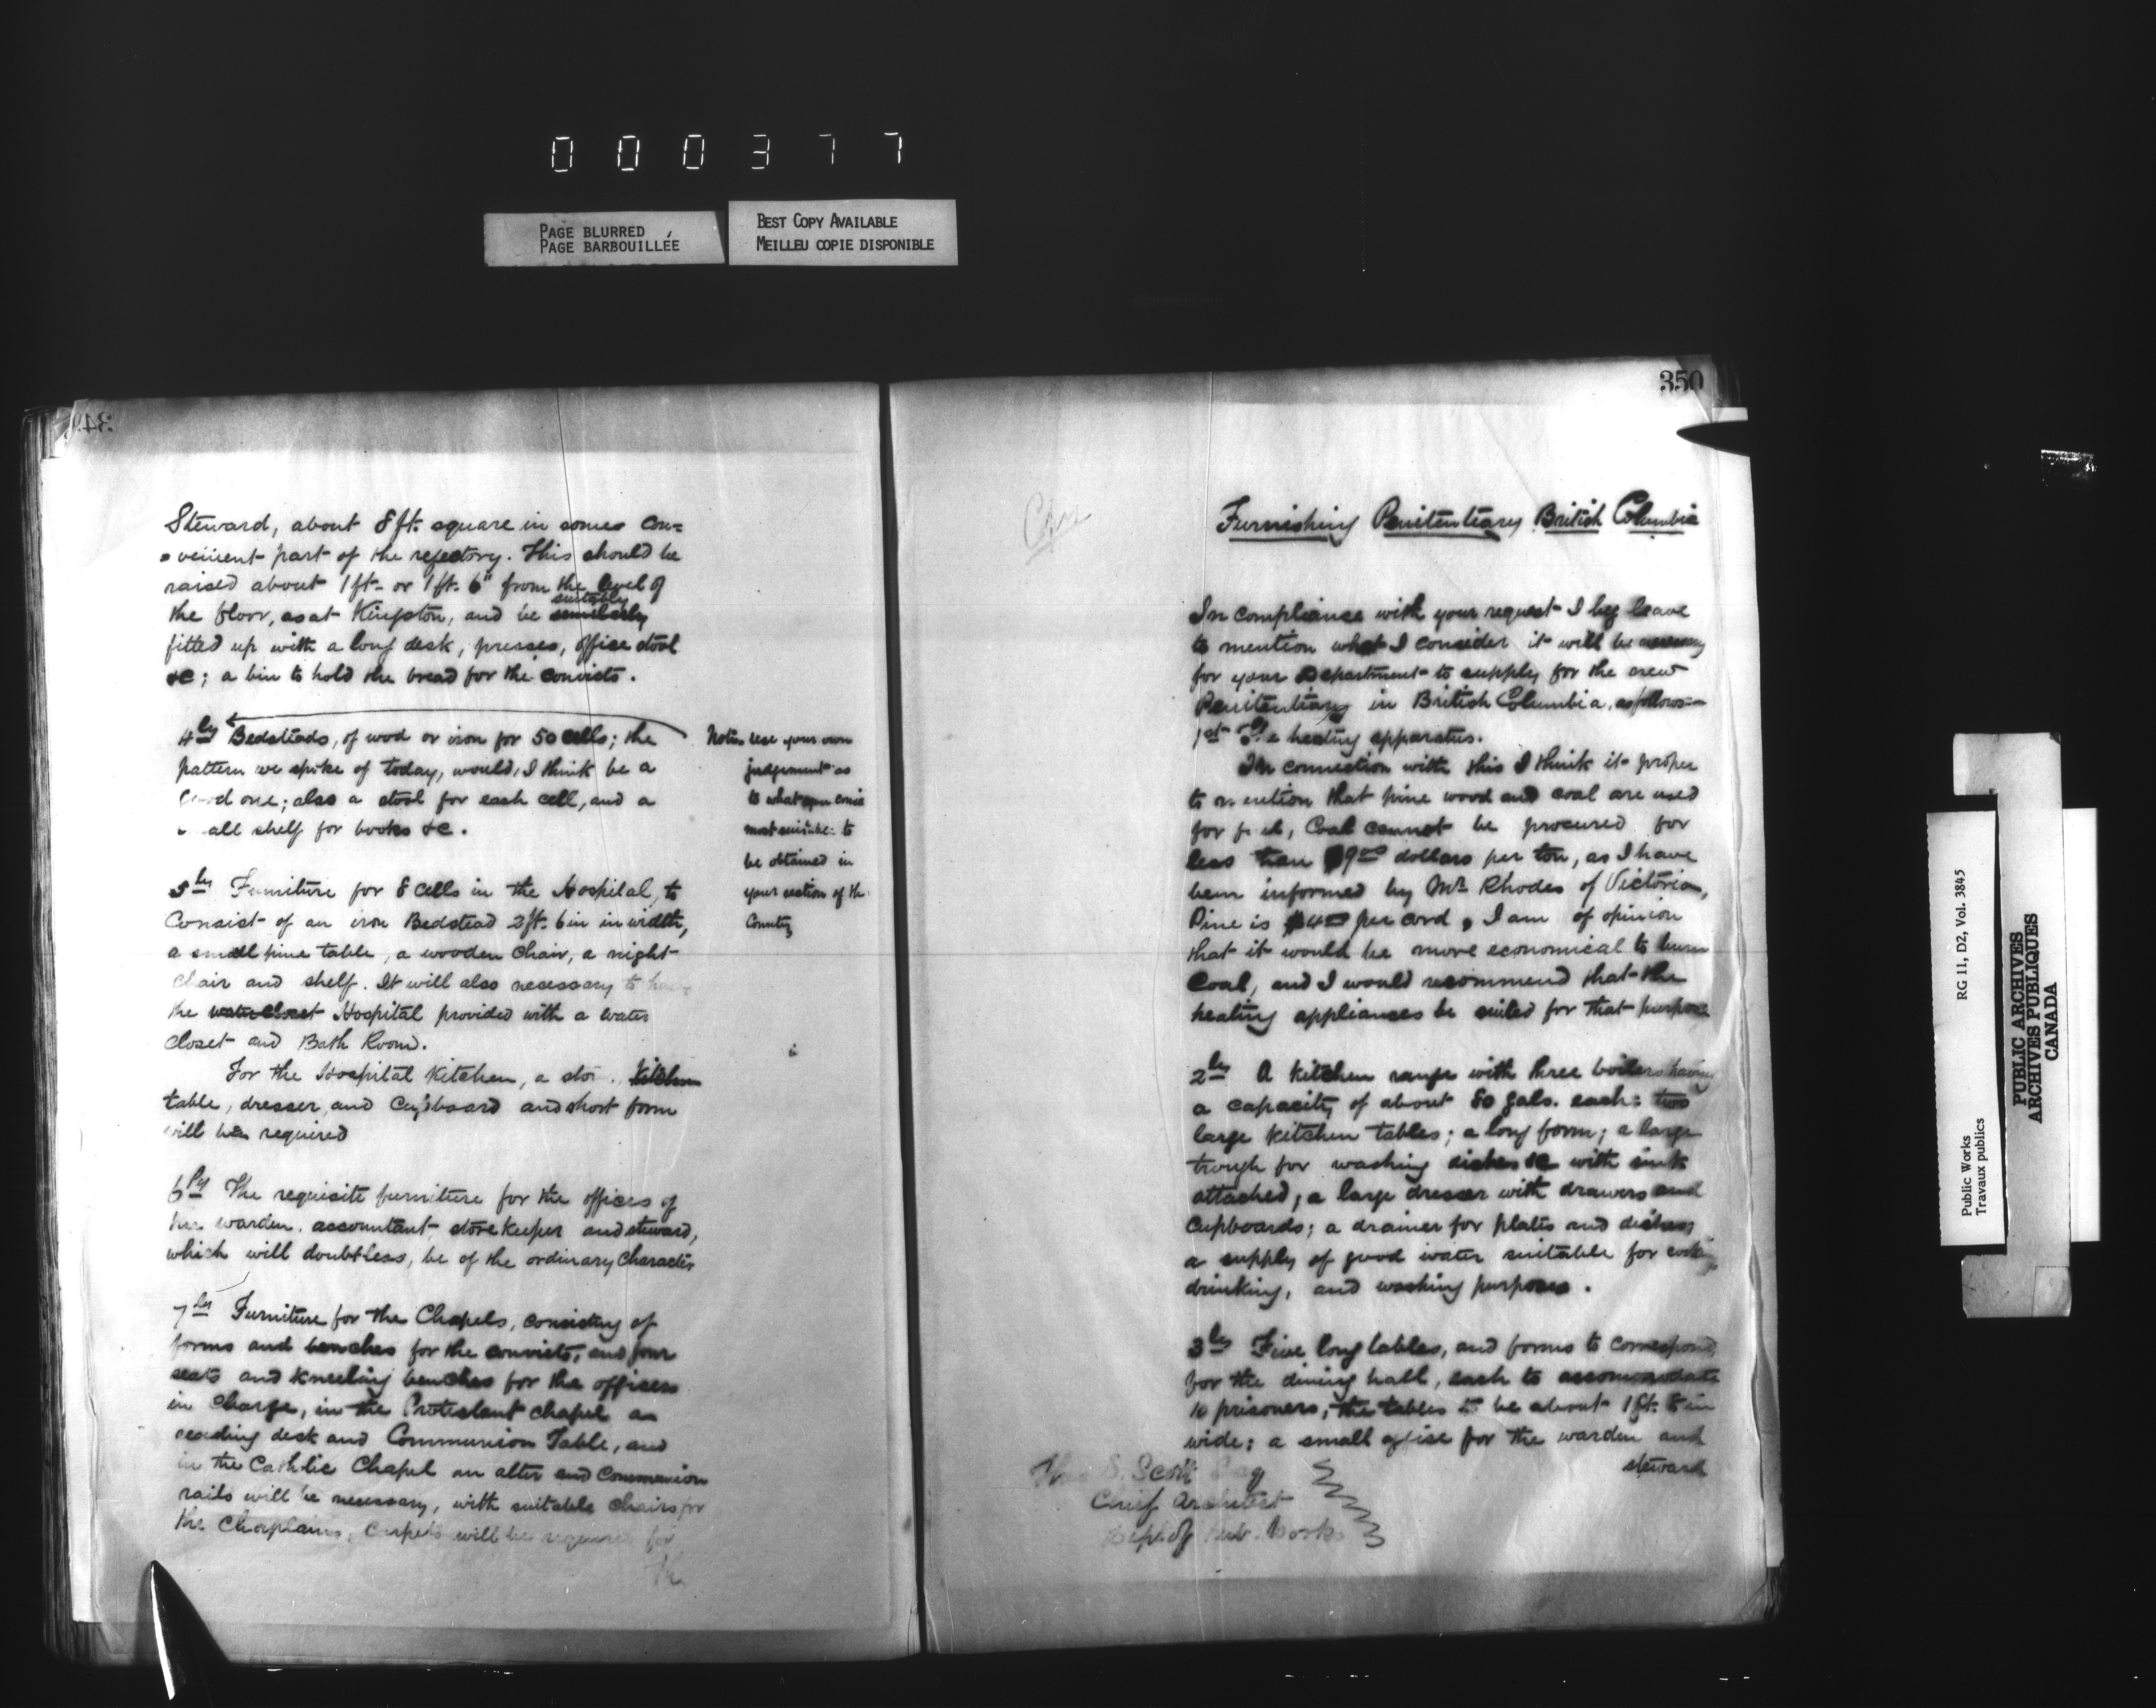 000377
PAGE BLURRED
PAGE BARBOUILLÉE
BEST COPY AVAILABLE
MEILLEU COPIE DISPONIBLE
349
Steward, about 8 ft. square in some con=
venient part of the refectory. This should be
raised about 1 ft. or 1 ft. 6" from the level of
suitably
the floor, as at Kingston, and be similarly
fitted up with a long desk, presses, office stool
&c; a bin to hold the bread for the convicts.
4ly Bedsteads, of wood or iron for 50 cells; the
pattern we spoke of today, would, I think be a
good one; also a stool for each cell, and a
all shelf for books &c.
Note. Use your own
judgement as
to what
most suitable to
be obtained in
your section of the
Country
5ly Furniture for 8 cells in the Hospital, to
Consist of an iron Bedstead 2 ft. 6 in in width,
a small pine table, a wooden Chair, a night-
chair and shelf. It will also necessary to have
the water closet Hospital provided with a water
closet and Bath Room.
For the Hospital Kitchen, a Kitchen
table, dresser and Cupboard and short form
will be required
6ly The requisite furniture for the offices of
the warden, accountant, store keeper and steward,
which will doubtless, be of the ordinary Character
7ly Furniture for the Chapels, consisting of
forms and benches for the convicts, and four
seats and kneeling benches for the officers
in Charge, in the Protestant chapel a
reading desk and Communion Table, and
in the Catholic Chapel an alter and Communion
rails will be necessary, with suitable chairs for
the Chaplains. Carpets will be required for
the
350
Copy
Furnishing Penitentiary British Columbia
In compliance with your request I beg leave
to mention what I consider it will be necessary
for your Department to supply for the new
Penitentiary in British Columbia, as follows:-
1st The heating apparatus.
In connection with this I think it proper
to mention that pine wood and coal are used
for fuel, Coal cannot be procured for
less than $9.00 dollars per ton, as I have
been informed by Mr. Rhodes of Victoria,
Pine is $4.00 per cord, I am of opinion
that it would be more economical to burn
Coal, and I would recommend that the
heating appliances be suited for that purpose
2ly A kitchen range with three boilers having
a capacity of about 80 gals. each: two
large kitchen tables; a long form; a large
trough for washing dishes &c with sink
attached; a large dresser with drawers and
Cupboards; a drainer for plates and dishes;
a supply of good water suitable for cooking
drinking, and washing purposes.
3ly Five long tables, and forms to correspond,
for the dining hall, each to accommodate
10 prisoners; the tables to be about 1 ft. 8 in
wide; a small office for the warden and
steward
Thos S. Scott Esq
Chief Architect
Dept. of Pub. Works
Public Works
Travaux publics
RG 11, D2, Vol. 3845
PUBLIC ARCHIVES
ARCHIVES PUBLIQUES
CANADA